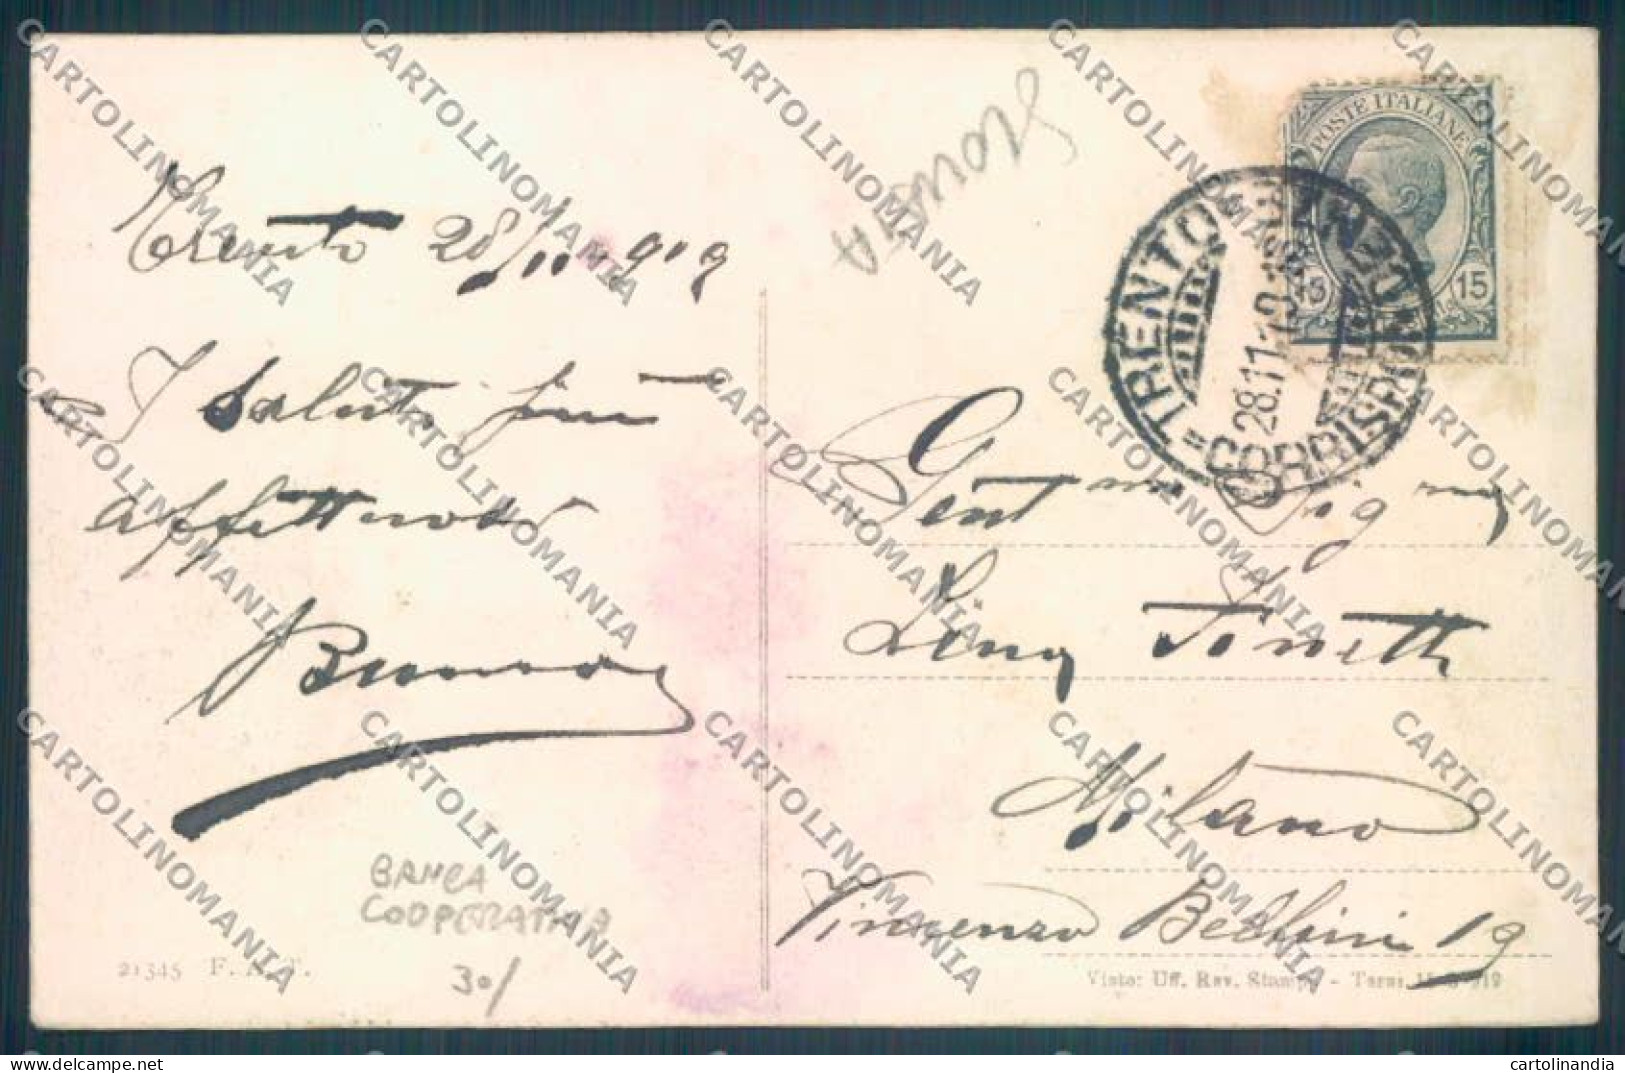 Trento 28/11-919
I saluti più
affettuosi
Bruno
BANCA
COOPERATIVA
30/
21345 F. A. T.
POSTE ITALIANE
15 15
TRENTO
28.11.19
CORRISP.
Gent ma Sig na
Lina
Milano
Vincenzo Bellini 19
Visto: Uff. Rev. Stampa - Terni
CARTOLINOMANIA
delcampe.net
cartolinandia